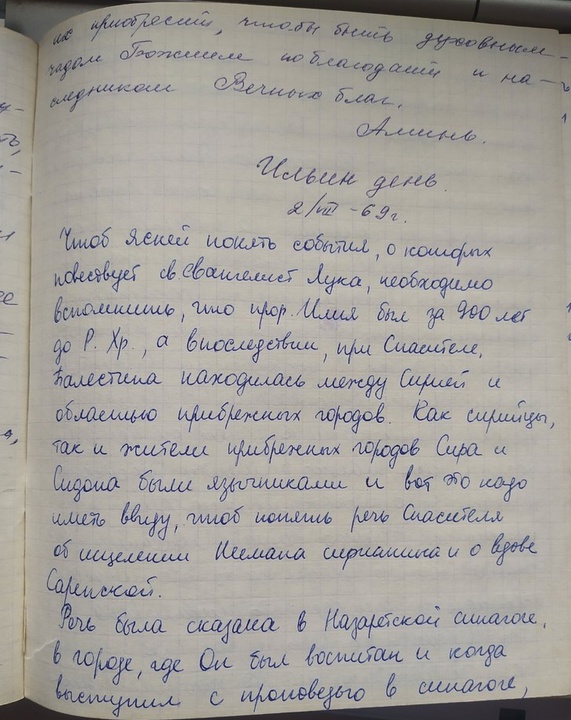 их приобрести, чтобы быть духовным
чадом Божиим по благодати и на-
следником Вечных благ.
Аминь.
Ильин день.
2/VIII-69г.
Чтоб ясней понять события, о которых
повествует св Евангелист Лука, необходимо
вспомнить, что прор. Илия был за 900 лет
до Р. Хр., а впоследствии, при Спасителе,
Палестина находилась между Сирией и
областью прибрежных городов. Как сирийцы,
так и жители прибрежных городов Сира и
Сидона были язычниками и вот это надо
иметь ввиду, чтоб понять речь Спасителя
об исцелении Неемана сириянина и о вдове
Сарепской.
Речь была сказана в Назаретской синагоге,
в городе, где Он был воспитан и когда
выступил с проповедью в синагоге,